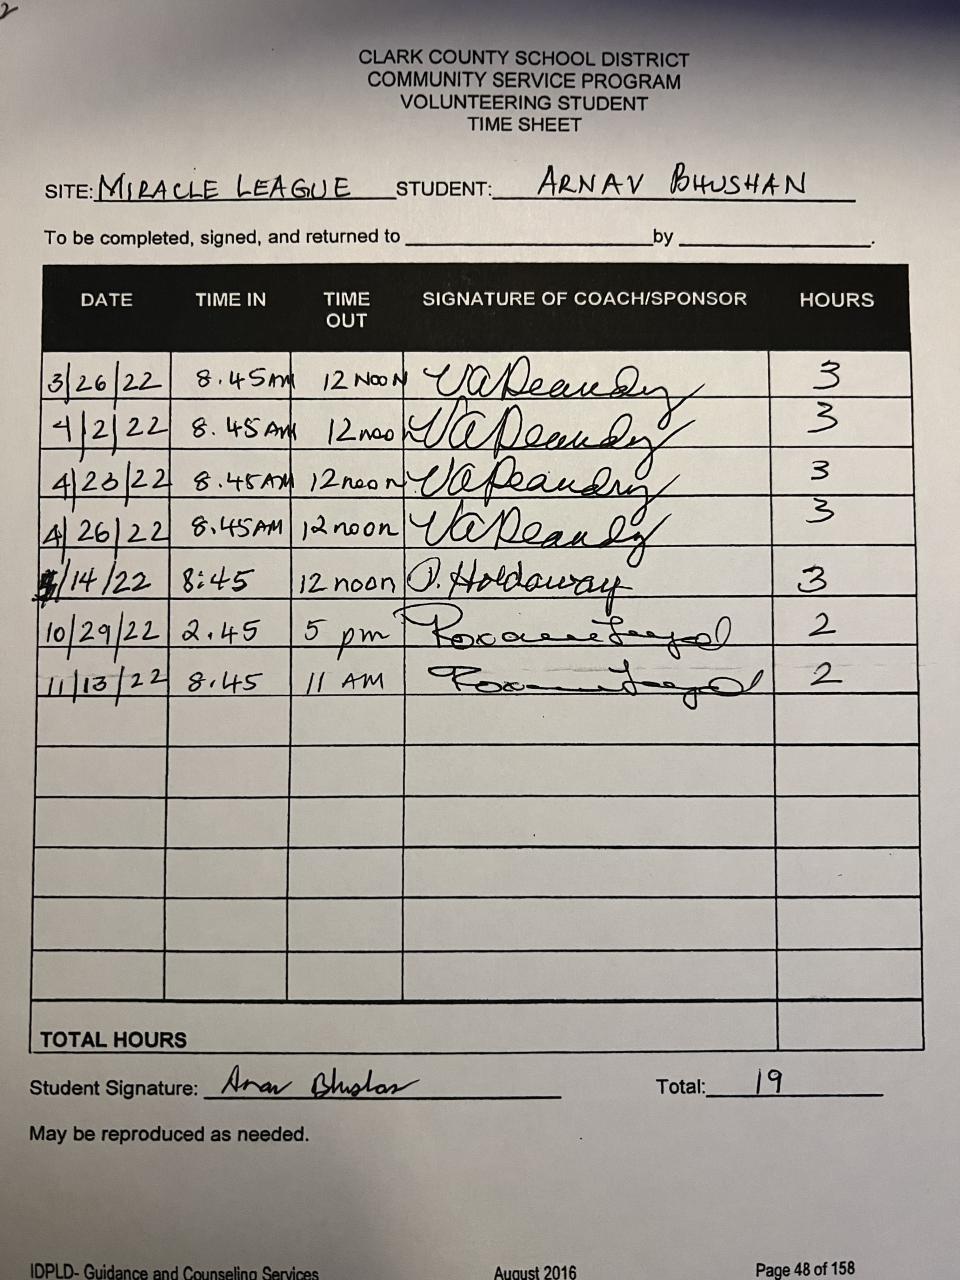 2
CLARK COUNTY SCHOOL DISTRICT
COMMUNITY SERVICE PROGRAM
VOLUNTEERING STUDENT
TIME SHEET
SITE: MIRACLE LEAGUE STUDENT: ARNAV BHUSHAN
To be completed, signed, and returned to by .
DATE TIME IN TIME OUT SIGNATURE OF COACH/SPONSOR HOURS
3/26/22 8.45AM 12 NOON 3
4/2/22 8.45AM 12noon 3
4/23/22 8.45AM 12noon 3
4/26/22 8.45AM 12noon 3
5/14/22 8:45 12 noon Holdaway 3
10/29/22 2.45 5 pm 2
11/13/22 8.45 11 AM 2
TOTAL HOURS
Student Signature: Arnav Bhushan Total: 19
May be reproduced as needed.
IDPLD- Guidance and Counseling Services August 2016 Page 48 of 158